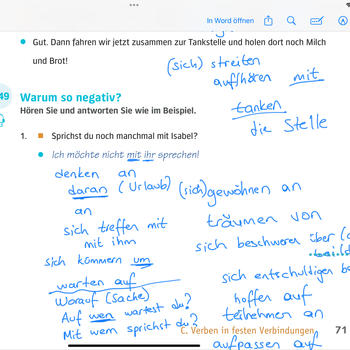 In Word öffnen
Gut. Dann fahren wir jetzt zusammen zur Tankstelle und holen dort noch Milch
und Brot!
(sich) streiten
aufhören mit
tanken
die Stelle
49
Warum so negativ?
Hören Sie und antworten Sie wie im Beispiel.
1. Sprichst du noch manchmal mit Isabel?
Ich möchte nicht mit ihr sprechen!
denken an
daran (Urlaub)
an
sich treffen mit
mit ihm
sich kümmern um
warten auf
Worauf (Sache)
Auf wen wartest du?
Mit wem sprichst du?
(sich) gewöhnen an
träumen von
sich beschweren über
sich entschuldigen
hoffen auf
teilnehmen an
aufpassen auf
C. Verben in festen Verbindungen
71